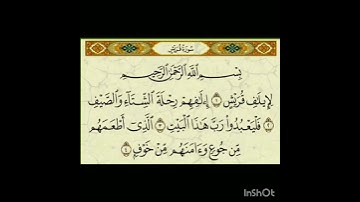 سُورَةُ قُرَيْشٍ
بِسْمِ ٱللَّهِ ٱلرَّحْمَٰنِ ٱلرَّحِيمِ
لِإِيلَٰفِ قُرَيْشٍ ١ إِۦلَٰفِهِمْ رِحْلَةَ ٱلشِّتَآءِ وَٱلصَّيْفِ
٢ فَلْيَعْبُدُوا۟ رَبَّ هَٰذَا ٱلْبَيْتِ ٣ ٱلَّذِىٓ أَطْعَمَهُم
مِّن جُوعٍ وَءَامَنَهُم مِّنْ خَوْفٍۭ ٤
InShOt